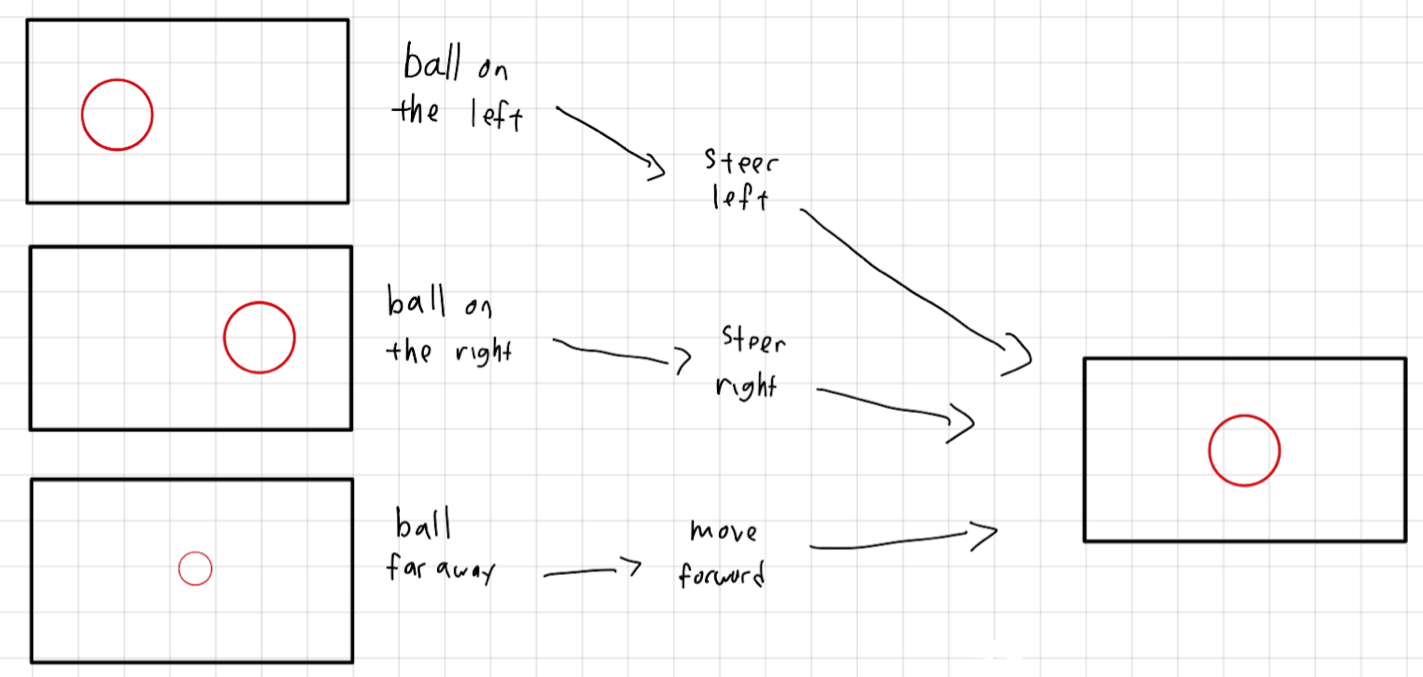 ball on
the left
steer
left
ball on
the right
steer
right
ball
far away
move
forward